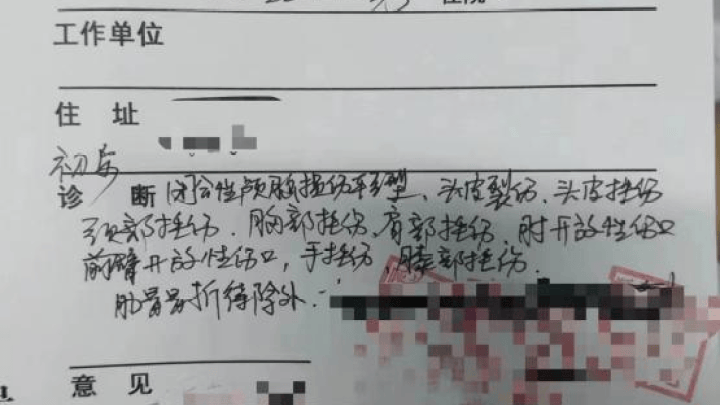 工作单位
住 址
初步
诊 断 闭合性颅脑损伤轻型、头皮裂伤、头皮挫伤
颈部挫伤、胸部挫伤、肩部挫伤、肘开放性伤口
前臂开放性伤口,手挫伤,膝部挫伤.
肋骨骨折待除外.
意 见